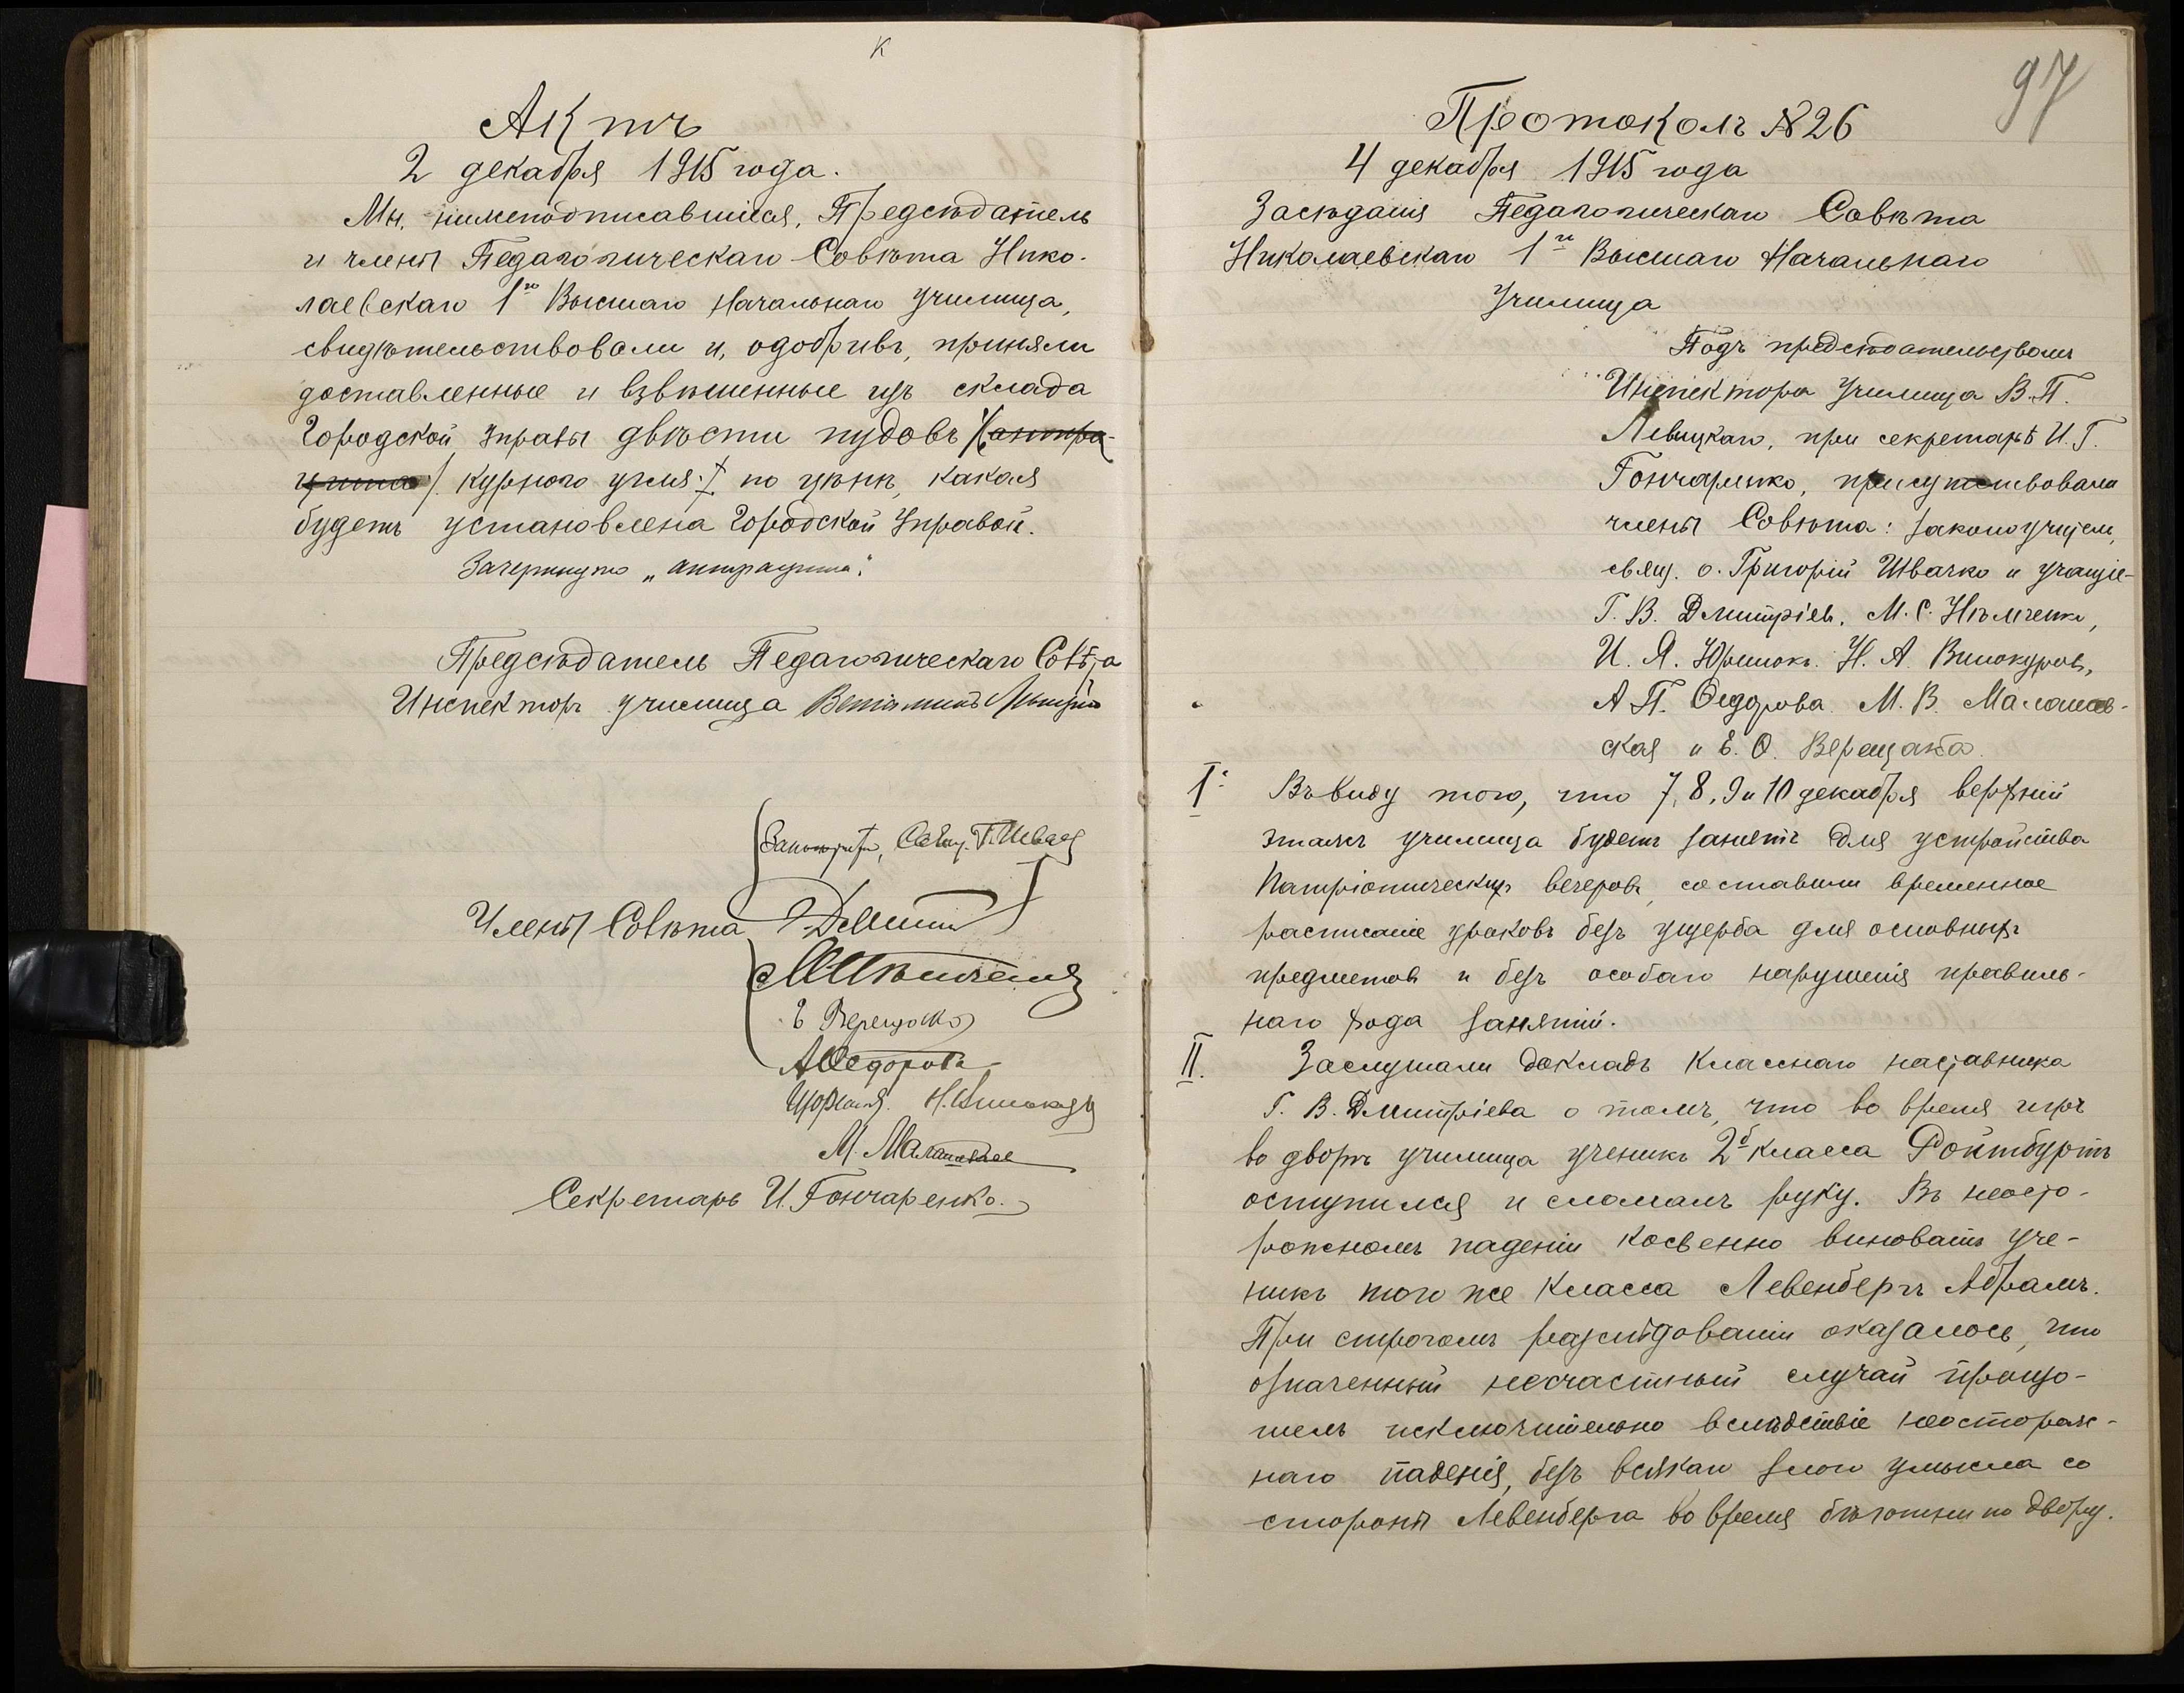 К
Актъ
2 декабря 1915 года.
Мы, нижеподписавшіеся, Предсѣдатель
и члены Педагогическаго Совѣта Нико-
лаевскаго 1го Высшаго Начальнаго Училища,
свидѣтельствовали и, одобривъ, приняли
доставленные и взвѣшенные изъ склада
Городской Управы двѣсти пудовъ /антра-
цита/ курного угля по цѣнѣ, какая
будетъ установлена Городской Управой.
Зачеркнуто „антрацита".
Предсѣдатель Педагогическаго Совѣта
Инспекторъ училища Веніаминъ Левицкій
Законоучитель, Свящ. Г. Швачко
Члены Совѣта Г. Дмитріевъ
М. Нѣмченко
Е. Верещака
А. Ѳедорова
Н. Винокуровъ
М. Малашевская
Секретарь И. Гончаренко.
97
Протоколъ № 26
4 декабря 1915 года
Засѣданія Педагогическаго Совѣта
Николаевскаго 1го Высшаго Начальнаго
Училища
Подъ предсѣдательствомъ
Инспектора Училища В. П.
Левицкаго, при секретарѣ И. Г.
Гончаренко, присутствовали
члены Совѣта: законоучитель,
свящ. о. Григорій Швачко и учащіе-
Г. В. Дмитріевъ, М. С. Нѣмченко,
И. Я. Юршокъ. Н. А. Винокуровъ,
А. П. Ѳедорова М. В. Малашев-
ская и Е. Ѳ. Верещака.
I. Въ виду того, что 7, 8, 9 и 10 декабря верхній
этажъ училища будетъ занятъ для устройства
патріотическихъ вечеровъ, составили временное
расписаніе уроковъ безъ ущерба для основныхъ
предметовъ и безъ особаго нарушенія правиль-
наго хода занятій.
II. Заслушали докладъ класснаго наставника
Г. В. Дмитріева о томъ, что во время игръ
во дворѣ училища ученикъ 2б класса Ройтбургъ
оступился и сломалъ руку. Въ неосто-
рожномъ паденіи косвенно виноватъ уче-
никъ того же класса Левенбергъ Абрамъ.
При строгомъ разслѣдованіи оказалось, что
означенный несчастный случай произо-
шелъ исключительно вслѣдствіе неосторож-
наго паденія, безъ всякаго злого умысла со
стороны Левенберга во время бѣготни по двору.